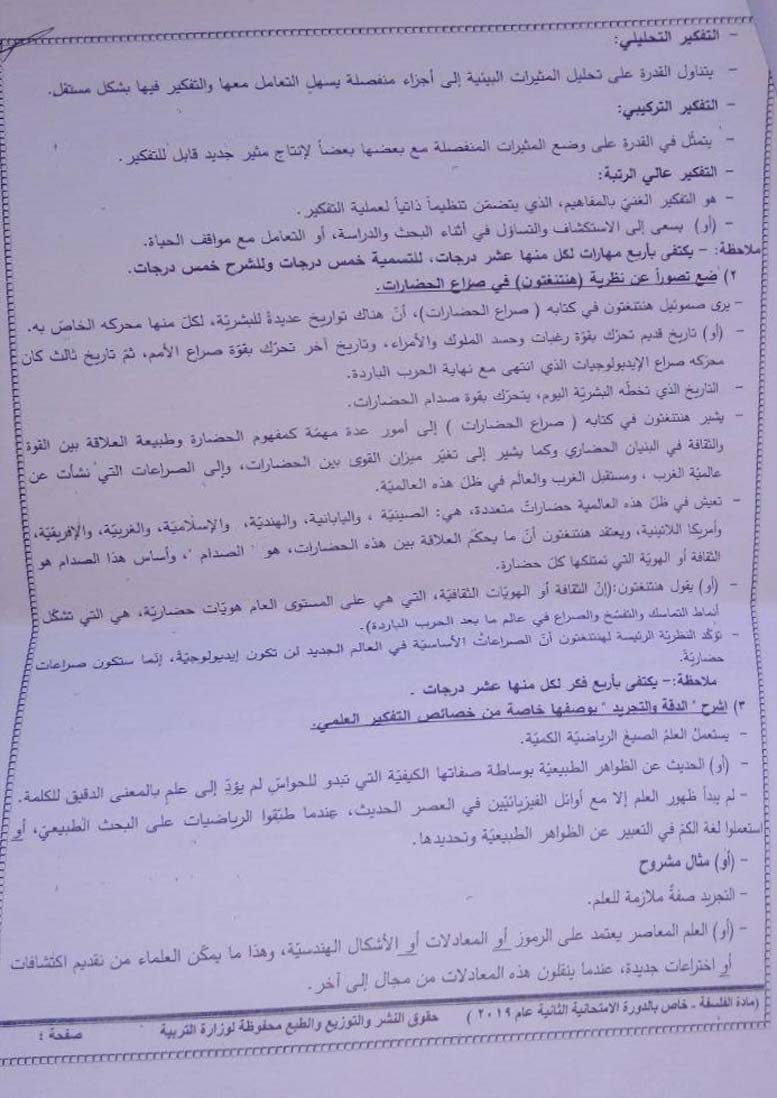 - التفكير التحليلي:
- يتناول القدرة على تحليل المثيرات البيئية إلى أجزاء منفصلة يسهل التعامل معها والتفكير فيها بشكل مستقل.
- التفكير التركيبي:
- يتمثّل في القدرة على وضع المثيرات المنفصلة مع بعضها بعضاً لإنتاج مثير جديد قابل للتفكير.
- التفكير عالي الرتبة:
- هو التفكير الغنيّ بالمفاهيم، الذي يتضمّن تنظيماً ذاتياً لعملية التفكير.
- (أو) يسعى إلى الاستكشاف والتساؤل في أثناء البحث والدراسة، أو التعامل مع مواقف الحياة.
ملاحظة: - يكتفى بأربع مهارات لكل منها عشر درجات، للتسمية خمس درجات وللشرح خمس درجات.
٢) ضع تصوراً عن نظرية (هنتنغتون) في صراع الحضارات.
- يرى صموئيل هنتنغتون في كتابه ( صراع الحضارات)، أنّ هناك تواريخ عديدة للبشريّة، لكلّ منها محركه الخاصّ به.
- (أو) تاريخ قديم تحرّك بقوّة رغبات وحسد الملوك والأمراء، وتاريخ آخر تحرّك بقوّة صراع الأمم، ثمّ تاريخ ثالث كان
محركه صراع الإيديولوجيات الذي انتهى مع نهاية الحرب الباردة.
- التاريخ الذي تخطّه البشريّة اليوم، يتحرّك بقوة صدام الحضارات.
- يشير هنتنغتون في كتابه ( صراع الحضارات ) إلى أمور عدة مهمّة كمفهوم الحضارة وطبيعة العلاقة بين القوة
والثقافة في البنيان الحضاري وكما يشير إلى تغيّر ميزان القوى بين الحضارات، وإلى الصراعات التي نشأت عن
عالميّة الغرب ، ومستقبل الغرب والعالم في ظلّ هذه العالميّة.
- تعيش في ظلّ هذه العالمية حضارات متعددة، هي: الصينيّة ، واليابانية، والهنديّة، والإسلاميّة، والغربيّة، والإفريقيّة،
وأمريكا اللاتينية، ويعتقد هنتنغتون أنّ ما يحكم العلاقة بين هذه الحضارات، هو " الصدام "، وأساس هذا الصدام هو
الثقافة أو الهويّة التي تمتلكها كلّ حضارة.
- (أو) يقول هنتنغتون:(إنّ الثقافة أو الهويّات الثقافيّة، التي هي على المستوى العام هويّات حضاريّة، هي التي تشكّل
أنماط التماسك والتفسّخ والصراع في عالم ما بعد الحرب الباردة).
- تؤكّد النظريّة الرئيسة لهنتنغتون أنّ الصراعات الأساسيّة في العالم الجديد لن تكون إيديولوجيّة، إنّما ستكون صراعات
حضاريّة.
ملاحظة:- يكتفى بأربع فكر لكل منها عشر درجات .
٣) اشرح "الدقة والتجريد" بوصفها خاصة من خصائص التفكير العلمي.
- يستعمل العلم الصيغ الرياضيّة الكميّة.
- (أو) الحديث عن الظواهر الطبيعيّة بوساطة صفاتها الكيفيّة التي تبدو للحواسّ لم يؤدِّ إلى علم بالمعنى الدقيق للكلمة.
- لم يبدأ ظهور العلم إلا مع أوائل الفيزيائيّين في العصر الحديث، عندما طبّقوا الرياضيات على البحث الطبيعيّ، أو
استعملوا لغة الكمّ في التعبير عن الظواهر الطبيعيّة وتحديدها.
- (أو) مثال مشروح
- التجريد صفةٌ ملازمة للعلم.
- (أو) العلم المعاصر يعتمد على الرموز أو المعادلات أو الأشكال الهندسيّة، وهذا ما يمكّن العلماء من تقديم اكتشافات
أو اختراعات جديدة، عندما ينقلون هذه المعادلات من مجال إلى آخر.
(مادة الفلسفة - خاص بالدورة الامتحانية الثانية عام ٢٠١٩ ) حقوق النشر والتوزيع والطبع محفوظة لوزارة التربية صفحة ٤